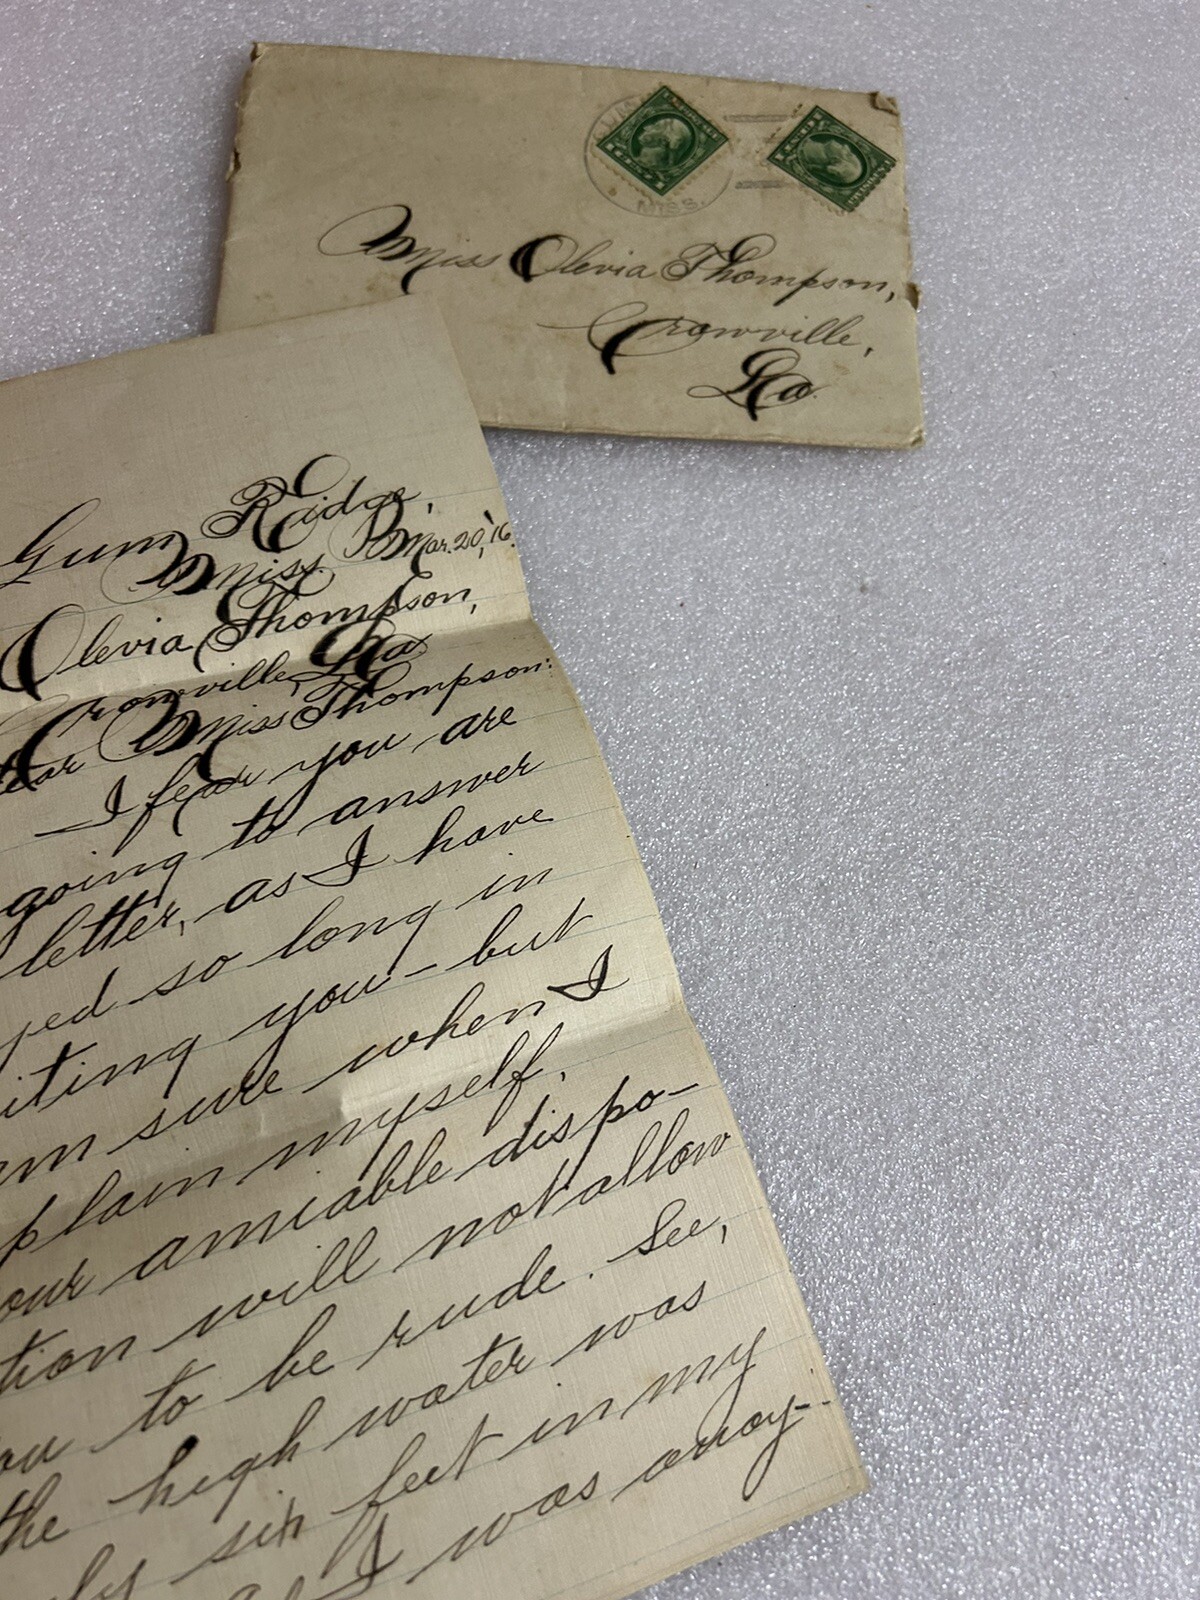 MISS.
Miss Olevia Thompson,
Crowville,
La.
Gum Ridge,
Miss. Mar. 20, '16.
Olevia Thompson,
Crowville, La
Dear Miss Thompson:
I fear you are
going to answer
letter, as I have
so long in
you - but
sure when I
myself.
amiable dispo-
tion will not allow
to be rude. See,
the high water was
six feet in my
I was away-